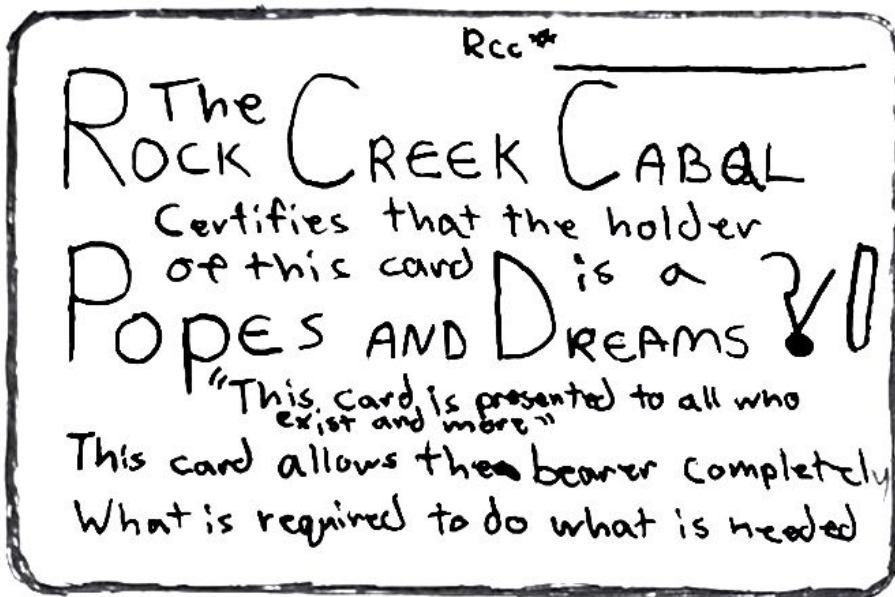 Rcc*
The
ROCK CREEK CABAL
Certifies that the holder
of this card is a
POPES AND DREAMS ?!
"This card is presented to all who
exist and more"
This card allows the bearer completely
What is required to do what is needed